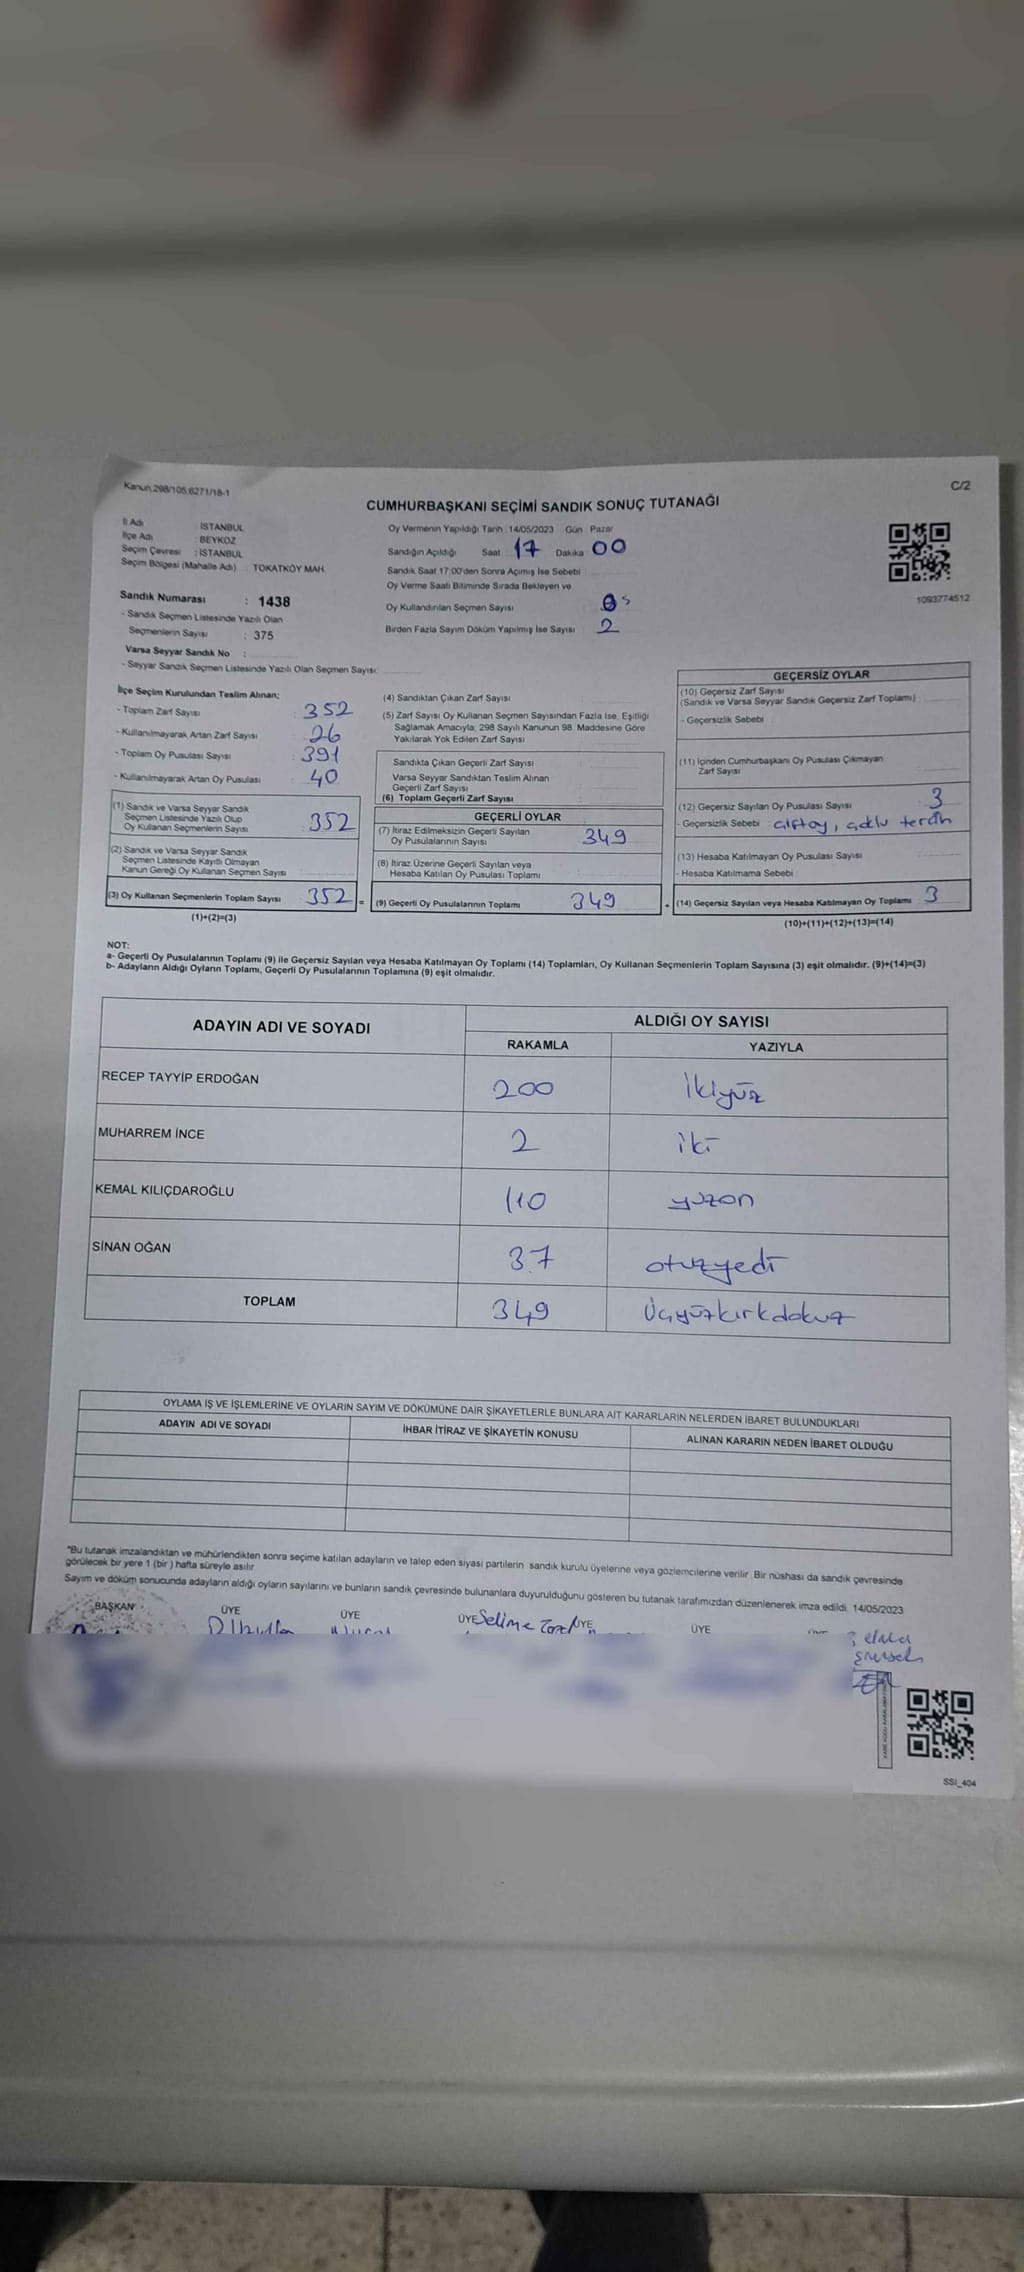 Kanun;298/105,6271/18-1
C/2
CUMHURBAŞKANI SEÇİMİ SANDIK SONUÇ TUTANAĞI
İl Adı İSTANBUL
İlçe Adı : BEYKOZ
Seçim Çevresi : İSTANBUL
Seçim Bölgesi (Mahalle Adı) TOKATKÖY MAH.
Sandık Numarası : 1438
- Sandık Seçmen Listesinde Yazılı Olan
Seçmenlerin Sayısı : 375
Varsa Seyyar Sandık No :
- Seyyar Sandık Seçmen Listesinde Yazılı Olan Seçmen Sayısı:
Oy Vermenin Yapıldığı Tarih : 14/05/2023 Gün : Pazar
Sandığın Açıldığı Saat 17 Dakika 00
Sandık Saat 17:00'den Sonra Açımış İse Sebebi
Oy Verme Saati Bitiminde Sırada Bekleyen ve
Oy Kullandırılan Seçmen Sayısı
Birden Fazla Sayım Döküm Yapılmış İse Sayısı 2
1093774512
İlçe Seçim Kurulundan Teslim Alınan;
- Toplam Zarf Sayısı 352
- Kullanılmayarak Artan Zarf Sayısı 26
- Toplam Oy Pusulası Sayısı 391
- Kullanılmayarak Artan Oy Pusulası 40
(1) Sandık ve Varsa Seyyar Sandık
Seçmen Listesinde Yazılı Olup
Oy Kullanan Seçmenlerin Sayısı 352
(2) Sandık ve Varsa Seyyar Sandık
Seçmen Listesinde Kayıtlı Olmayan
Kanun Gereği Oy Kullanan Seçmen Sayısı
(3) Oy Kullanan Seçmenlerin Toplam Sayısı 352 =
(1)+(2)=(3)
(4) Sandıktan Çıkan Zarf Sayısı
(5) Zarf Sayısı Oy Kullanan Seçmen Sayısından Fazla İse, Eşitliği
Sağlamak Amacıyla, 298 Sayılı Kanunun 98. Maddesine Göre
Yakılarak Yok Edilen Zarf Sayısı
Sandıkta Çıkan Geçerli Zarf Sayısı
Varsa Seyyar Sandıktan Teslim Alınan
Geçerli Zarf Sayısı
(6) Toplam Geçerli Zarf Sayısı
GEÇERLİ OYLAR
(7) İtiraz Edilmeksizin Geçerli Sayılan
Oy Pusulalarının Sayısı 349
(8) İtiraz Üzerine Geçerli Sayılan veya
Hesaba Katılan Oy Pusulası Toplamı
(9) Geçerli Oy Pusulalarının Toplamı 349 +
GEÇERSİZ OYLAR
(10) Geçersiz Zarf Sayısı
(Sandık ve Varsa Seyyar Sandık Geçersiz Zarf Toplamı)
- Geçersizlik Sebebi
(11) İçinden Cumhurbaşkanı Oy Pusulası Çıkmayan
Zarf Sayısı
(12) Geçersiz Sayılan Oy Pusulası Sayısı 3
- Geçersizlik Sebebi : çiftoy, çoklu tercih
(13) Hesaba Katılmayan Oy Pusulası Sayısı
- Hesaba Katılmama Sebebi
(14) Geçersiz Sayılan veya Hesaba Katılmayan Oy Toplamı 3
(10)+(11)+(12)+(13)=(14)
NOT:
a- Geçerli Oy Pusulalarının Toplamı (9) ile Geçersiz Sayılan veya Hesaba Katılmayan Oy Toplamı (14) Toplamları, Oy Kullanan Seçmenlerin Toplam Sayısına (3) eşit olmalıdır. (9)+(14)=(3)
b- Adayların Aldığı Oyların Toplamı, Geçerli Oy Pusulalarının Toplamına (9) eşit olmalıdır.
ADAYIN ADI VE SOYADI ALDIĞI OY SAYISI
RAKAMLA YAZIYLA
RECEP TAYYİP ERDOĞAN 200 ikiyüz
MUHARREM İNCE 2 iki
KEMAL KILIÇDAROĞLU 110 yüzon
SİNAN OĞAN 37 otuzyedi
TOPLAM 349 Üçyüzkırkdokuz
OYLAMA İŞ VE İŞLEMLERİNE VE OYLARIN SAYIM VE DÖKÜMÜNE DAİR ŞİKAYETLERLE BUNLARA AİT KARARLARIN NELERDEN İBARET BULUNDUKLARI
ADAYIN ADI VE SOYADI İHBAR İTİRAZ VE ŞİKAYETİN KONUSU ALINAN KARARIN NEDEN İBARET OLDUĞU
"Bu tutanak imzalandıktan ve mühürlendikten sonra seçime katılan adayların ve talep eden siyasi partilerin sandık kurulu üyelerine veya gözlemcilerine verilir. Bir nüshası da sandık çevresinde
görülecek bir yere 1 (bir ) hafta süreyle asılır
Sayım ve döküm sonucunda adayların aldığı oyların sayılarını ve bunların sandık çevresinde bulunanlara duyurulduğunu gösteren bu tutanak tarafımızdan düzenlenerek imza edildi. 14/05/2023
BAŞKAN ÜYE ÜYE ÜYE ÜYE ÜYE
Selime
SSI_404